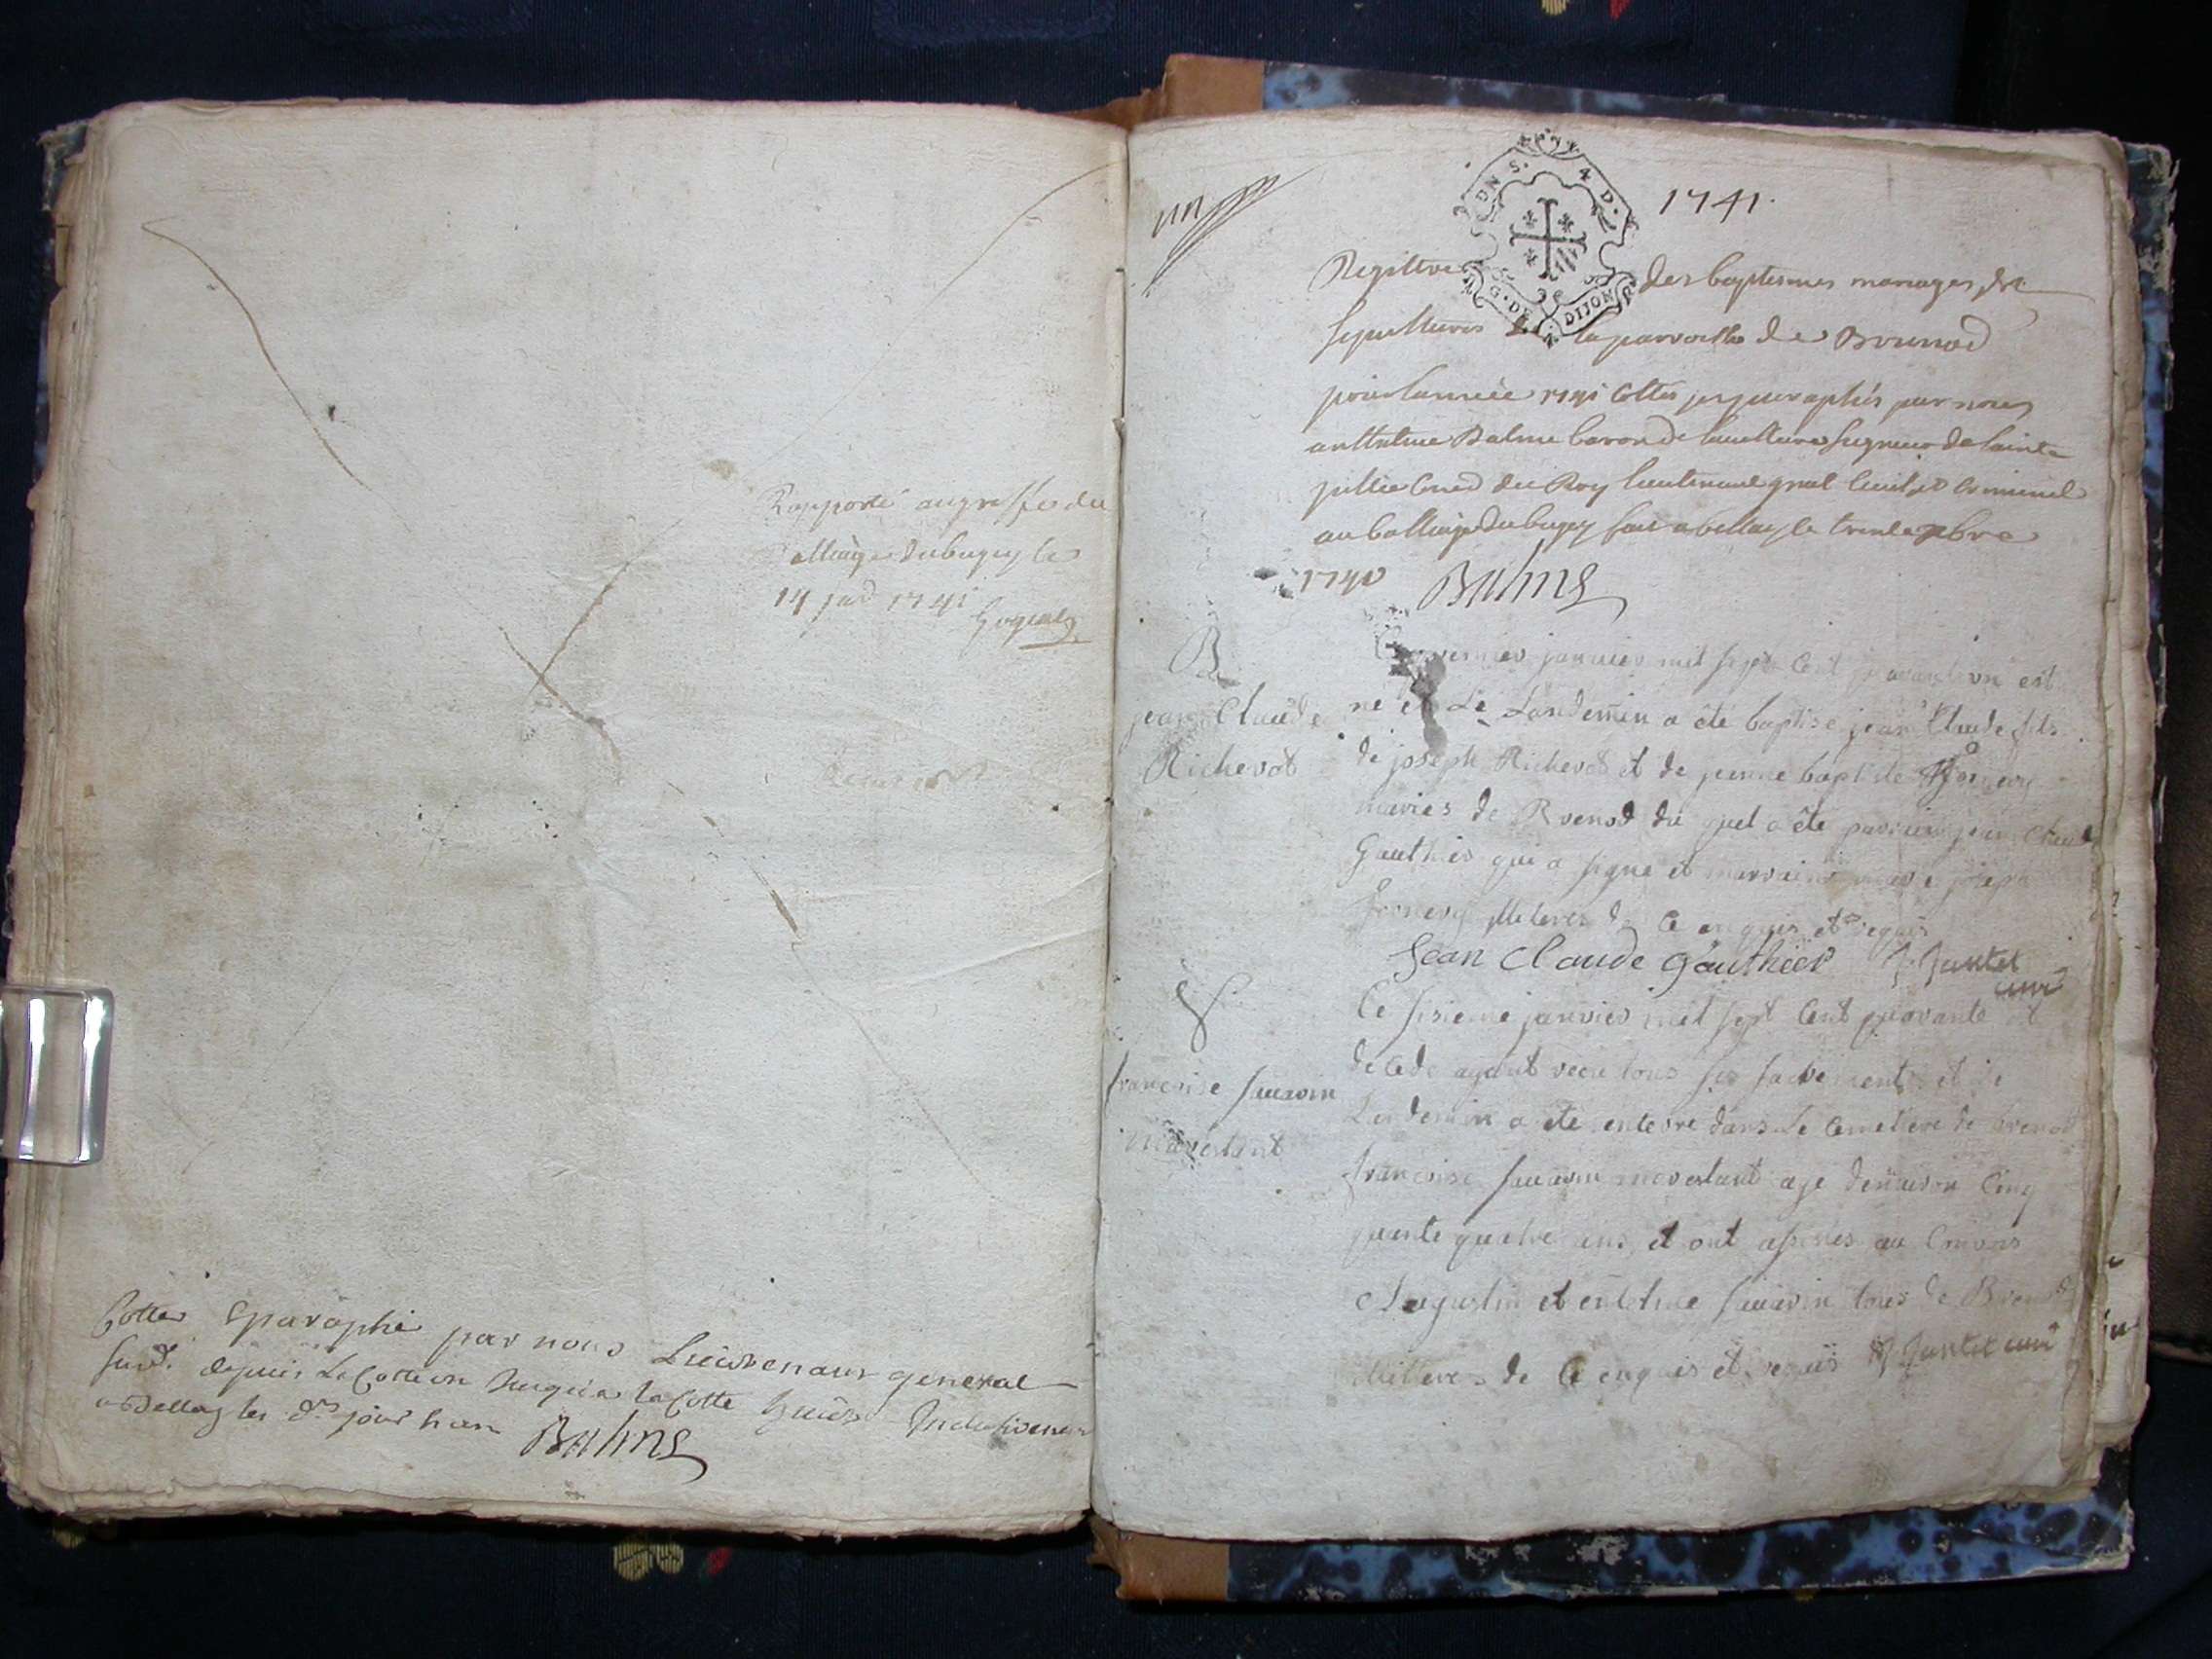 Rapporté au greffe du
Balliage du bugey le
14 1741
Cotte e paraphé par nous Lieutenant general
susd. depuis La Cotte un Jusqu'a la Cotte huict Inclusivement
a Bellay les d. jour & an Balme
un
DNS. 4 D.
G. DE DIJON
1741.
Registre des baptesmes mariages et
sepultures de la parroisse de Brenod
pour l'année 1741 Cottes et paraphés par nous
anthelme Balme baron de seigneur de sainte
Julie Cons du Roy lieutenant gnal Civil et Criminel
au balliage du bugey fait a bellay le trente xbre
1740 Balme
B
jean Claude
Richerot
Le premier janvier mil sept Cent quarante un est
né et Le Landemin a été baptisé jean Claude fils
de joseph Richerot et de jeanne baptiste
maries de Brenod du quel a été parrain jean Claude
Gauthier qui a signé et marraine joseph
illeteres de Ce enquis et requis
Jean Claude Gauthier J. Jantet
curé
S
francoise sauarin
marestant
Ce sisieme janvier mil sept Cent quarante est
decede ayant recu tous ses sacrements et le
Landemin a été enterré dans Le Cemetiere de brenod
francoise sauarin marestant age denuiron Cinq
quante quatre ans, et ont assistes au Convois
Augustin et entelme sauarin tous de Brenod
illiteres de Ce enquis et requis J. Jantet curé